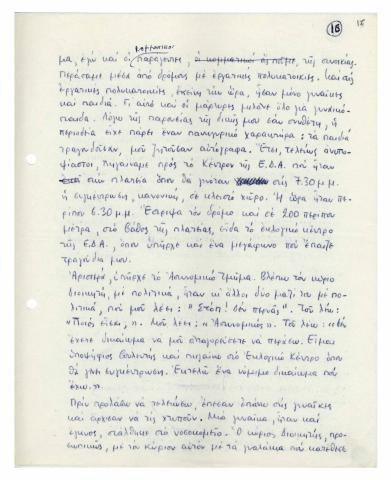 18
(18)
τοπικοί
μα, εγώ και οἱ παράγοντες, οἱ κομματικοί τῆς συνοικίας.
Περάσαμε μέσα ἀπό δρόμους μέ ἐργατικές πολυκατοικίες. Καί στίς
ἐργατικές πολυκατοικίες, ἐκείνη τήν ὥρα, ἦσαν μόνο γυναῖκες
καί παιδιά. Γι αὐτό καί οἱ μάρτυρες μιλᾶνε ὅλο γιά γυναικό-
παιδα. Λόγω τῆς παρουσίας τῆς δικῆς μου σάν συνθέτη, ἡ
περιοδεία εἶχε πάρει ἕναν πανηγυρικό χαρακτήρα: τά παιδιά
τραγουδοῦσαν, μοῦ ζητοῦσαν αὐτόγραφα. Ἔτσι, τελείως ἀνυπο-
ψίαστοι, πηγαίναμε πρός τό Κέντρο τῆς Ε.Δ.Α. πού ἦταν
στήν πλατεία ὅπου θά γινόταν στίς 7.30 μ.μ.
ἡ συγκέντρωση, κανονική, σέ κλειστό χῶρο. Ἡ ὥρα ἦταν πε-
ρίπου 6.30 μ.μ. Ἔστριψα τόν δρόμο καί σέ 200 περίπου
μέτρα, στό βάθος τῆς πλατείας, εἶδα τό ἐκλογικό κέντρο
τῆς Ε.Δ.Α., ὅπου ὑπῆρχε καί ἕνα μεγάφωνο πού ἔπαιζε
τραγούδια μου.
Ἀριστερά, ὑπῆρχε τό Ἀστυνομικό Τμῆμα. Βλέπω τόν κύριο
Διοικητή, μέ πολιτικά, ἦταν κι ἄλλοι δύο μαζί του μέ πο-
λιτικά, πού μοῦ λέει: "Στόπ! Δέν περνᾶς". Τοῦ λέω:
"Ποιός εἶσαι;". Μοῦ λέει: "Ἀστυνομικός". Τοῦ λέω: "Δέν
ἔχετε δικαίωμα νά μοῦ ἀπαγορεύσετε νά περάσω. Εἶμαι
ὑποψήφιος βουλευτής καί πηγαίνω στό Ἐκλογικό Κέντρο ὅπου
θά γίνῃ συγκέντρωση. Ἐκτελῶ ἕνα νόμιμο δικαίωμα πού
ἔχω."
Πρίν προλάβω νά τελειώσω, ἔπεσαν ἐπάνω στίς γυναῖκες
καί ἄρχισαν νά τίς χτυποῦν. Μιά γυναίκα, ἦταν καί
ἔγκυος, στάλθηκε στό νοσοκομεῖο. Ὁ κύριος Διοικητής, προ-
σωπικῶς, μέ τόν κύριον αὐτόν μέ τά γυαλάκια πού κατέθεσε